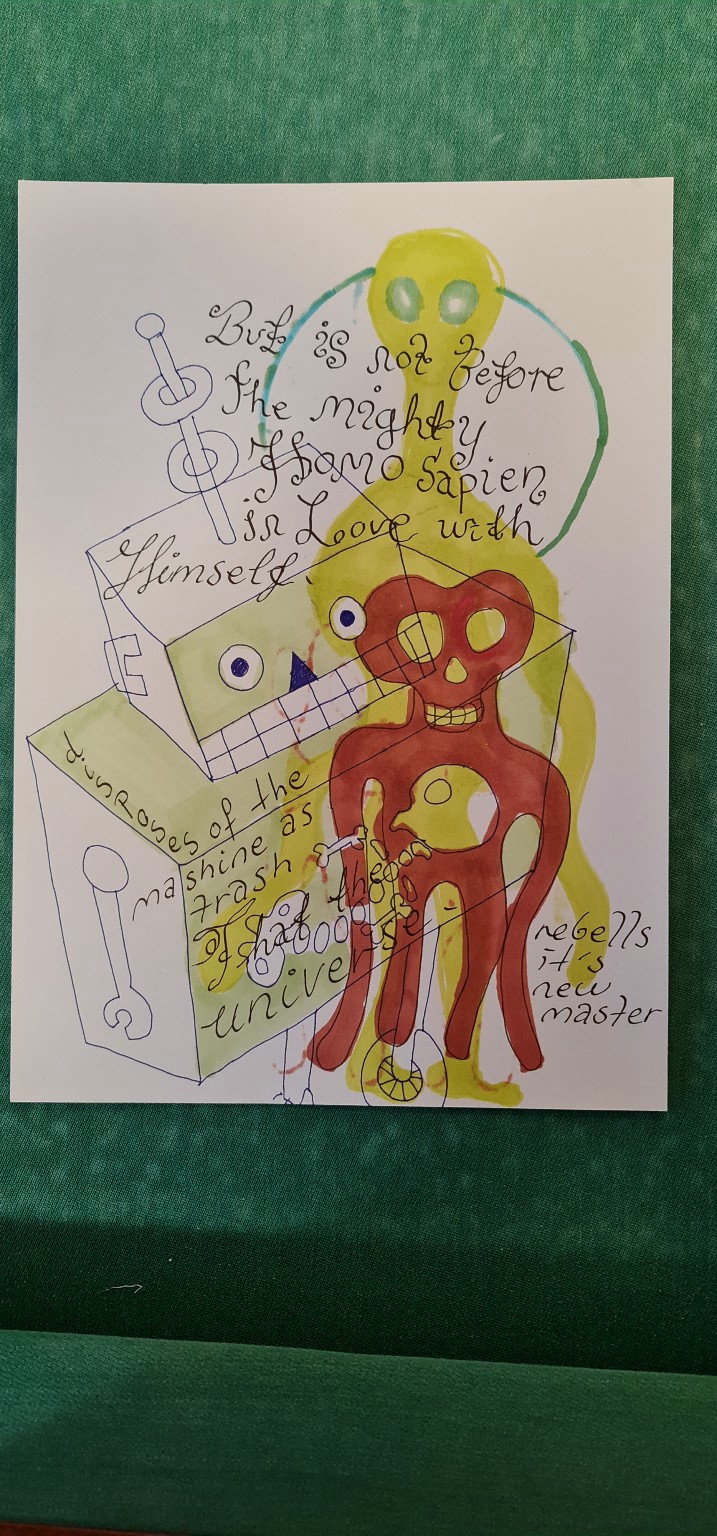 But is not before
the mighty
Homo Sapien
in Love with
Himself.
disposes of the
mashine as
trash
That the
universe
rebells
it's
new
master